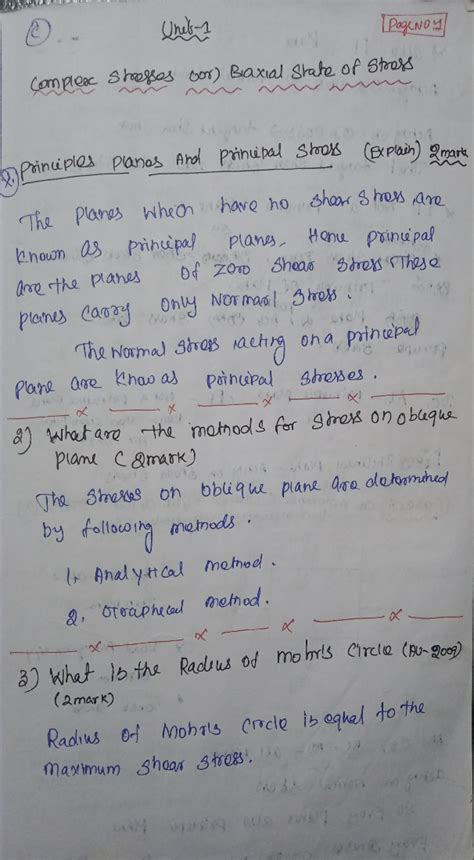 Unit-1
Page NO:1
Complex Stresses (or) Biaxial State of Stress
Principles planes And principal Stress (Explain) 2mark
The planes which have no shear stress are
known as principal planes, Hene principal
are the planes of zoro shear stress These
planes carry only Normarl stress.
The Normal stress acting on a principal
plane are know as principal stresses.
2) What are the mathods for stress on obleque
plane (2mark)
The stresses on oblique plane are determined
by following methods.
1. Analytical method.
2. Graphecal method.
3) What is the Radius of mohrls circle (AU-2009)
(2mark)
Radius of Mohrls circle is equal to the
maximum shear stress.